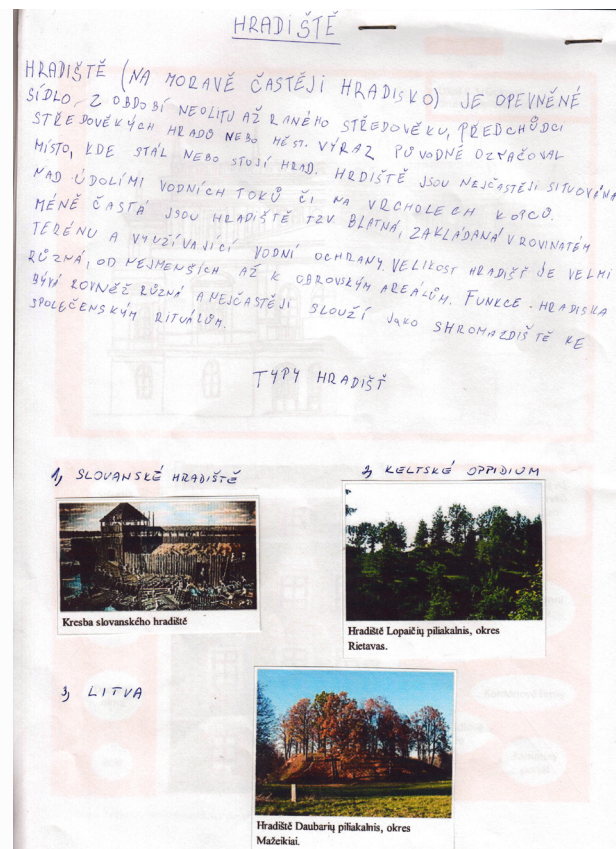 HRADIŠTĚ
HRADIŠTĚ (NA MORAVĚ ČASTĚJI HRADISKO) JE OPEVNĚNÉ
SÍDLO Z OBDOBÍ NEOLITU AŽ RANÉHO STŘEDOVĚKU, PŘEDCHŮDCI
STŘEDOVĚKÝCH HRADŮ NEBO MĚST. VÝRAZ PŮVODNĚ OZNAČOVAL
MÍSTO, KDE STÁL NEBO STOJÍ HRAD. HRDIŠTĚ JSOU NEJČASTĚJI SITUOVÁNA
NAD ÚDOLÍMI VODNÍCH TOKŮ ČI NA VRCHOLECH KOPCŮ.
MÉNĚ ČASTÁ JSOU HRADIŠTĚ TZV. BLATNÁ, ZAKLÁDANÁ V ROVINATÉM
TERÉNU A VYUŽÍVAJÍCÍ VODNÍ OCHRANY. VELIKOST HRADIŠŤ JE VELMI
RŮZNÁ, OD NEJMENŠÍCH AŽ K OBROVSKÝM AREÁLŮM. FUNKCE - HRADISKA
BÝVÁ ROVNĚŽ RŮZNÁ A NEJČASTĚJI SLOUŽÍ JAKO SHROMAZDIŠTĚ KE
SPOLEČENSKÝM RITUÁLŮM.
TYPY HRADIŠŤ
1, SLOVANSKÉ HRADIŠTĚ
2, KELTSKÉ OPPIDIUM
Kresba slovanského hradiště
Hradiště Lopaičių piliakalnis, okres
Rietavas.
3, LITVA
Hradiště Daubarių piliakalnis, okres
Mažeikiai.